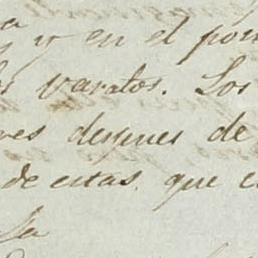 y en el
varatos. Los
despues de
de estas. que
La